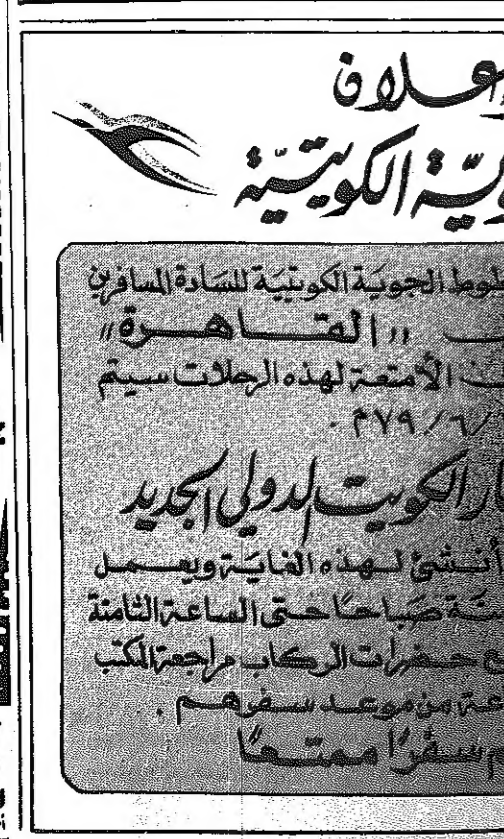 إعلان
ـويـة الكويتيّة
ـطوط الجوية الكويتية للسَادة المسافرين
ـب «القـاهـرة»
ـن الأمتعة لهذه الرحلات سيتم
/٦/٧٩م .
ـار الكويت الدولي الجديد
أنشئ لهذه الغاية ويعمل
ـنة صَباحًا حتى الساعة الثامنة
ـع حضرات الركاب مراجعة المكتب
ـعة من موعد سفرهم .
ـم سفرًا ممتعًا